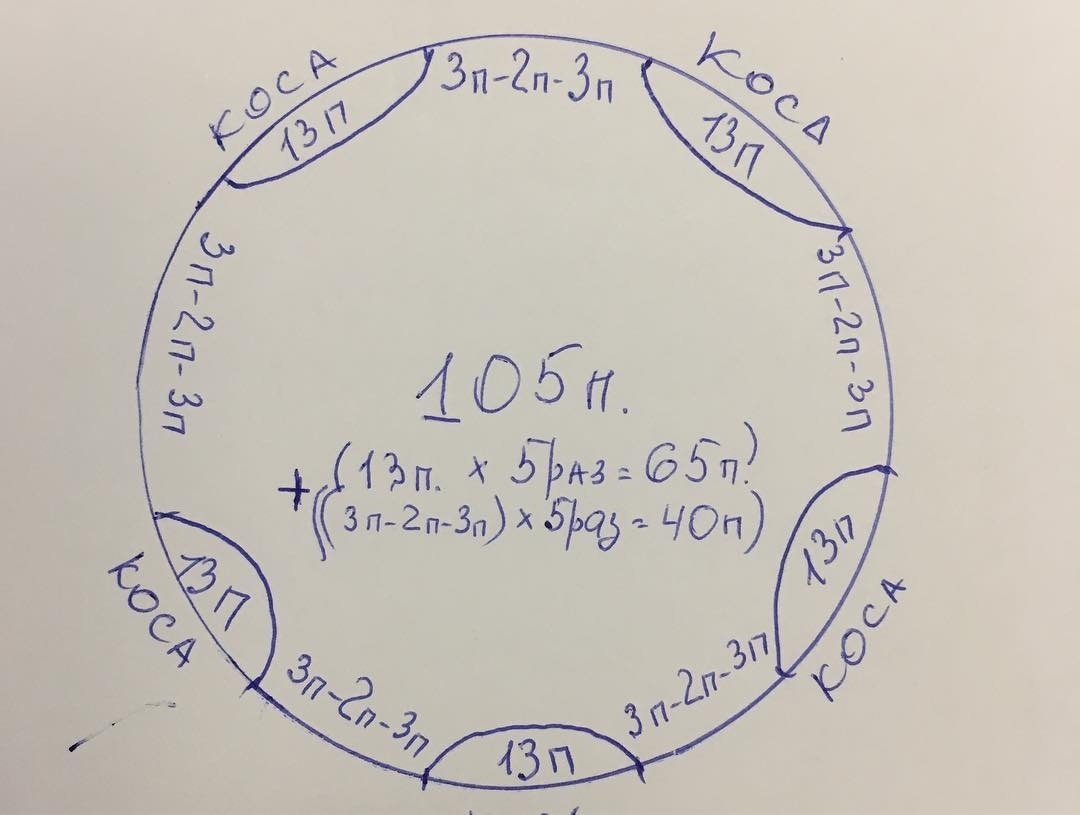 КОСА
13п
3п-2п-3п
КОСА
13п
3п-2п-3п
3п-2п-3п
105п.
(13п. х 5раз = 65п.)
+((3п-2п-3п) х 5раз = 40п)
13п
КОСА
13п
КОСА
3п-2п-3п
3п-2п-3п
13п